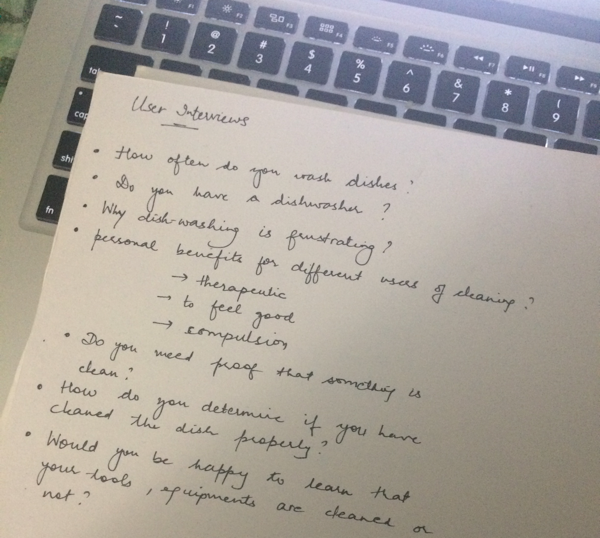 ~ ` ! 1 @ 2 # 3 $ 4 % 5 ^ 6 & 7 * 8 ( 9
fn
User Interviews
• How often do you wash dishes?
• Do you have a dishwasher ?
• Why dish-washing is frustrating ?
• personal benefits for different users of cleaning ?
→ therapeutic
→ to feel good
→ compulsion
• Do you need proof that something is
clean ?
• How do you determine if you have
cleaned the dish properly ?
• Would you be happy to learn that
your tools , equipments are cleaned or
not ?